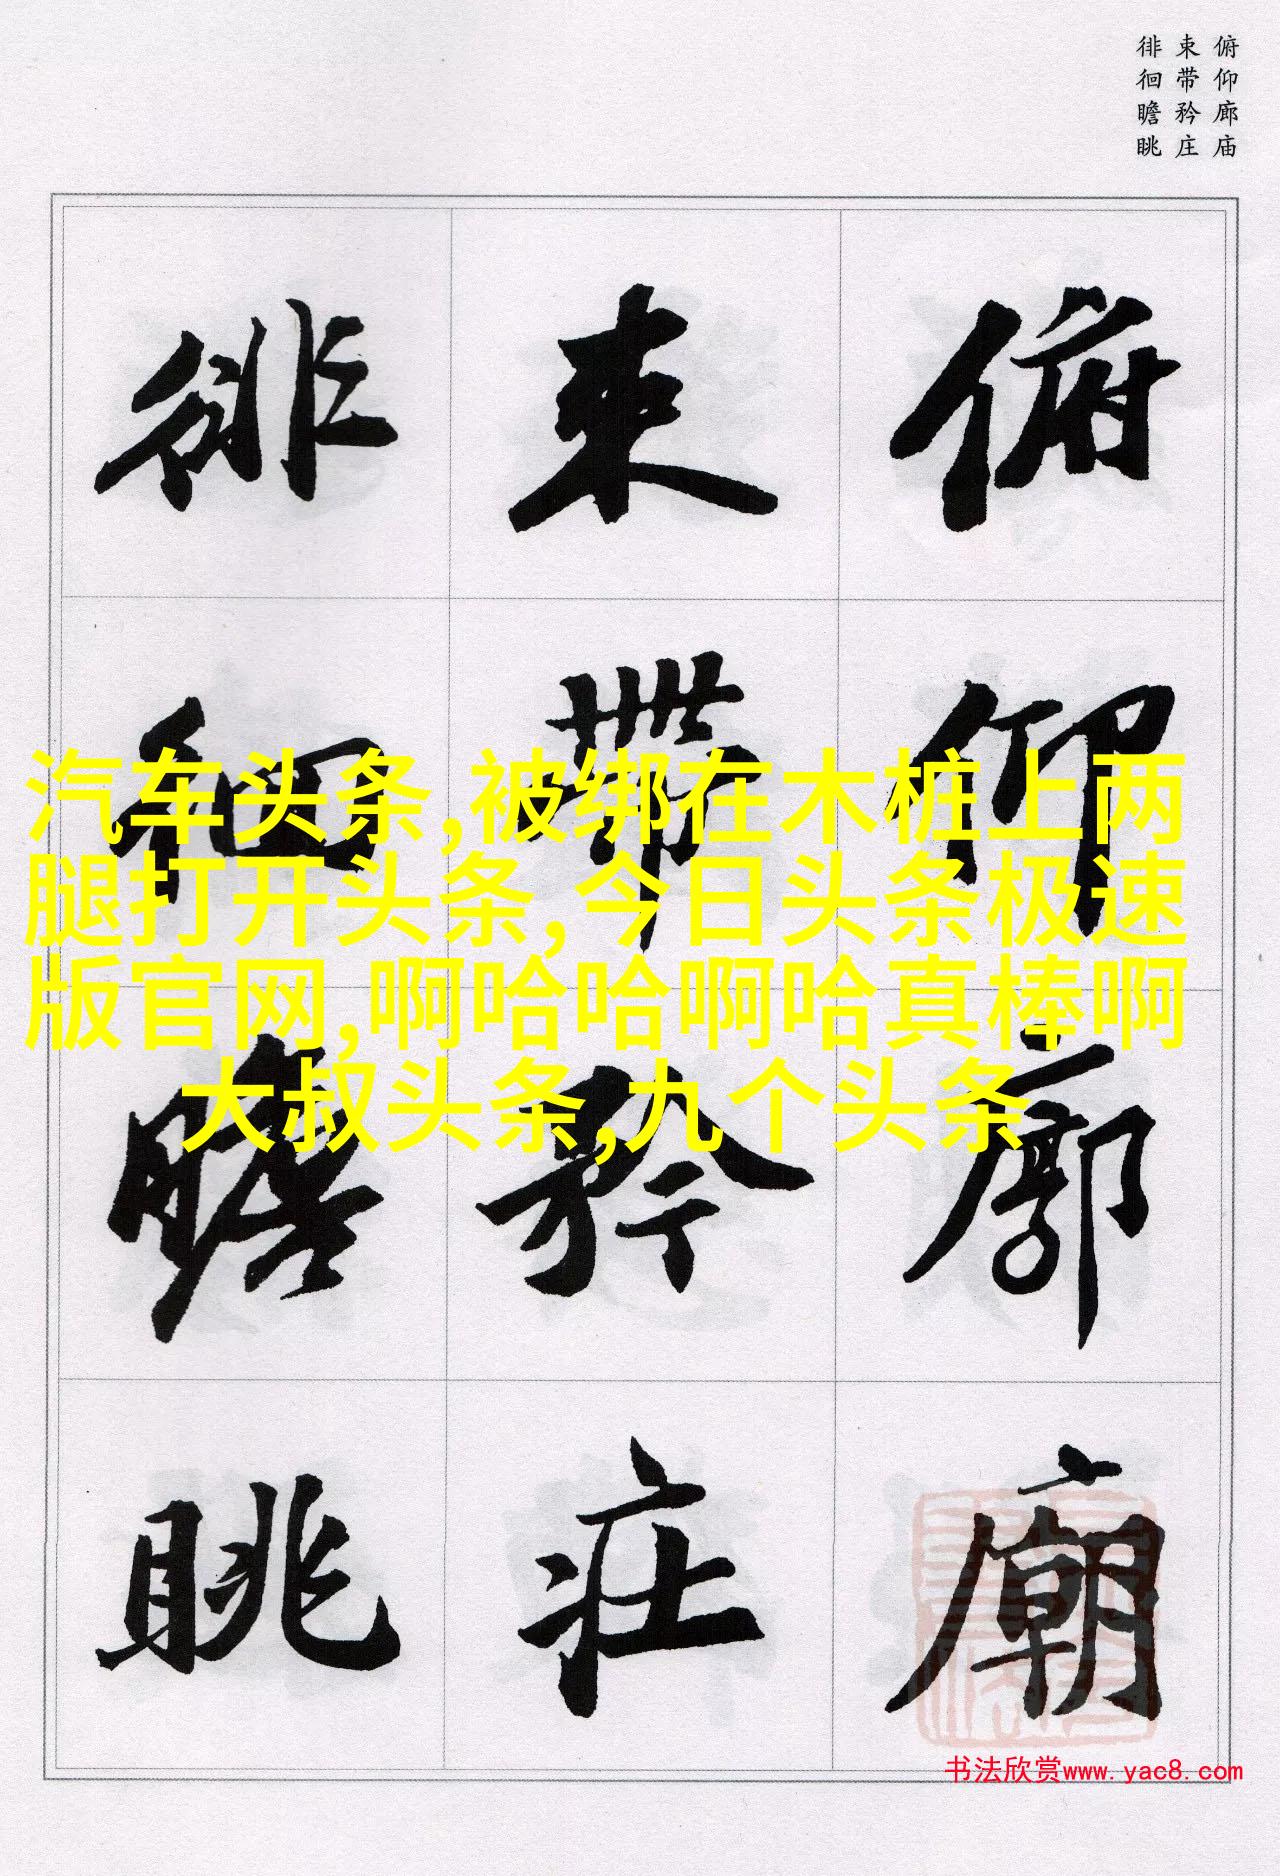 俯仰廊庙
束带矜庄
徘徊瞻眺
俯仰廊廟
束帶矜莊
徘徊瞻眺
汽车头条,被绑在木桩上两
腿打开头条,今日头条极速
版官网,啊哈哈啊哈真棒啊
大叔头条,九个头条
书法欣赏www.yac8.com